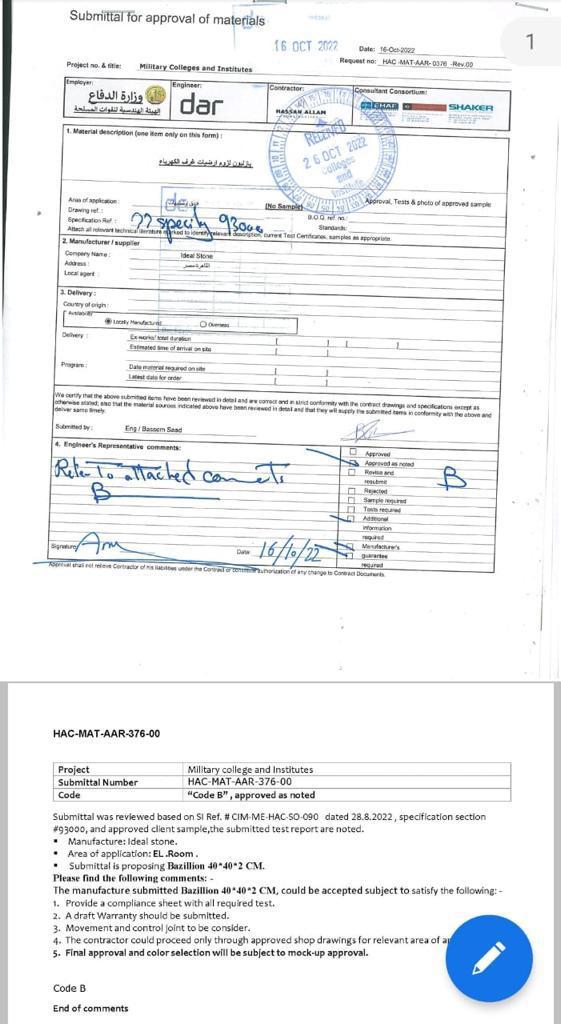 Submittal for approval of materials
16 OCT 2022
Date: 16-Oct-2022
1
Project no. & title: Military Colleges and Institutes
Request no: HAC-MAT-AAR-0376 -Rev.00
Employer:
Engineer:
Contractor:
Consultant Consortium:
وزارة الدفاع
الهيئة الهندسية للقوات المسلحة
dar
HASSAN ALLAM
EHAF
SHAKER
1. Material description (one item only on this form) :
RECEIVED
26 OCT 2022
Colleges
and
بازلتون لزوم ارضيات غرف الكهرباء
Area of application:
[No Sample]
Approval, Tests & photo of approved sample
Drawing ref.:
B.O.Q. ref no.:
Specification Ref.:
?? specify 93000
Standards:
Attach all relevant technical literature marked to identify relevant description, current Test Certificates, samples as appropriate.
2. Manufacturer / supplier
Company Name:
Ideal Stone
Address:
Local agent:
3. Delivery:
Country of origin:
Availability
Locally Manufactured
Overseas
Delivery :
Ex-works/ total duration
Estimated time of arrival on site
Program:
Date material required on site
Latest date for order
We certify that the above submitted items have been reviewed in detail and are correct and in strict conformity with the contract drawings and specifications except as
otherwise stated; also that the material sources indicated above have been reviewed in detail and that they will supply the submitted items in conformity with the above and
deliver same timely.
Submitted by: Eng / Bassem Saad
4. Engineer's Representative comments:
Refer To attached comments
B
Approved
Approved as noted
Revise and
resubmit
Rejected
Sample required
Tests required
Additional
information
required
Manufacture's
guarantee
required
B
Signature
Date
16/10/22
Approval shall not relieve Contractor of his liabilities under the Contract or constitute authorization of any change to Contract Documents.
HAC-MAT-AAR-376-00
Project Military college and Institutes
Submittal Number HAC-MAT-AAR-376-00
Code "Code B" , approved as noted
Submittal was reviewed based on SI Ref. # CIM-ME-HAC-SO-090 dated 28.8.2022 , specification section
#93000, and approved client sample,the submitted test report are noted.
▪ Manufacture: Ideal stone.
▪ Area of application: EL .Room .
▪ Submittal is proposing Bazillion 40*40*2 CM.
Please find the following comments: -
The manufacture submitted Bazillion 40*40*2 CM, could be accepted subject to satisfy the following: -
1. Provide a compliance sheet with all required test.
2. A draft Warranty should be submitted.
3. Movement and control joint to be consider.
4. The contractor could proceed only through approved shop drawings for relevant area of
5. Final approval and color selection will be subject to mock-up approval.
Code B
End of comments